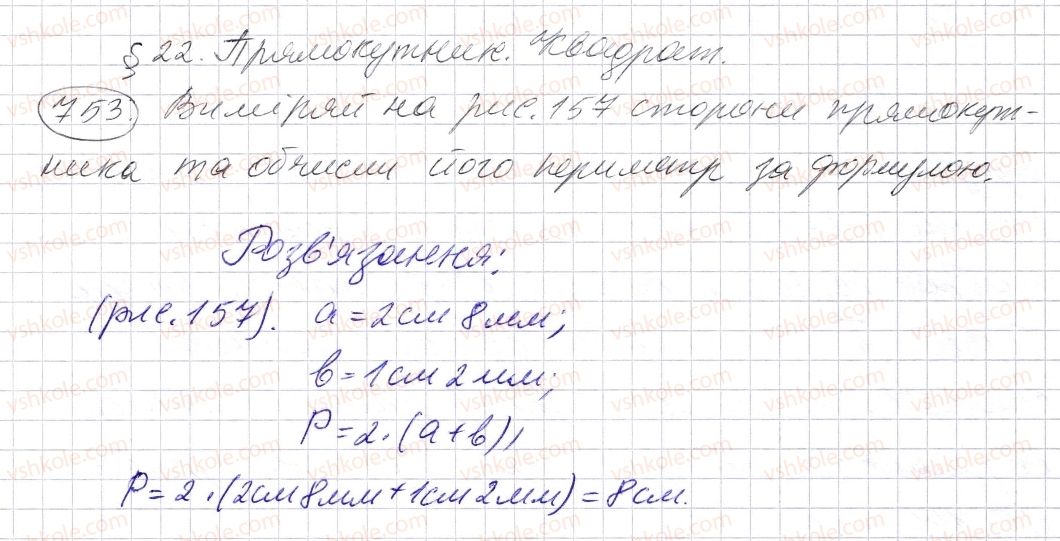 § 22. Прямокутник. Квадрат.
753. Виміряй на рис. 157 сторони прямокут-
ника та обчисли його периметр за формулою.
Розв'язання:
(рис. 157). a = 2 см 8 мм;
в = 1 см 2 мм;
P = 2 · (a + в);
P = 2 · (2 см 8 мм + 1 см 2 мм) = 8 см.
vshkole.com